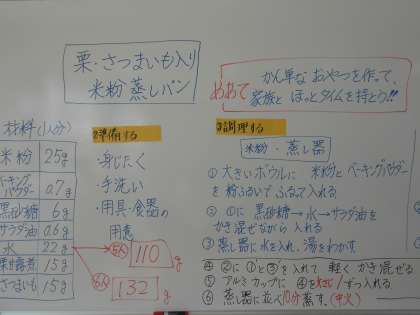 栗・さつまいも入り
米粉 蒸しパン
めあて
かん単な おやつを作って、
家族と ほっとタイムを持とう!!
材料(1人分)
米粉 25g
ベーキングパウダー 0.7g
黒砂糖 6g
サラダ油 0.6g
水 22g
栗甘露煮 15g
さつまいも 15g
5人 110g
6人 132g
2準備する
・身じたく
・手洗い
・用具・食器の
用意
3調理する
米粉・蒸し器
① 大きいボウルに 米粉とベーキングパウダー
を粉ふるいで ふるって入れる
② ①に 黒砂糖→水→サラダ油を
かき混ぜながら 入れる
③ 蒸し器に水を入れ、湯をわかす
④ ②に ①と③を入れて 軽く かき混ぜる
⑤ アルミカップに ④を 大さじ1ずつ入れる
⑥ 蒸し器に並べ 10分 蒸す。(中火)